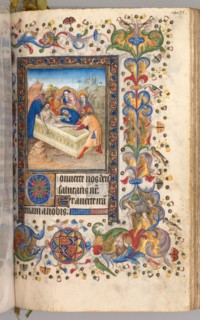 Conuerte nos deus
salutaris nr̄
Et auerte irā
tuam a nobis.